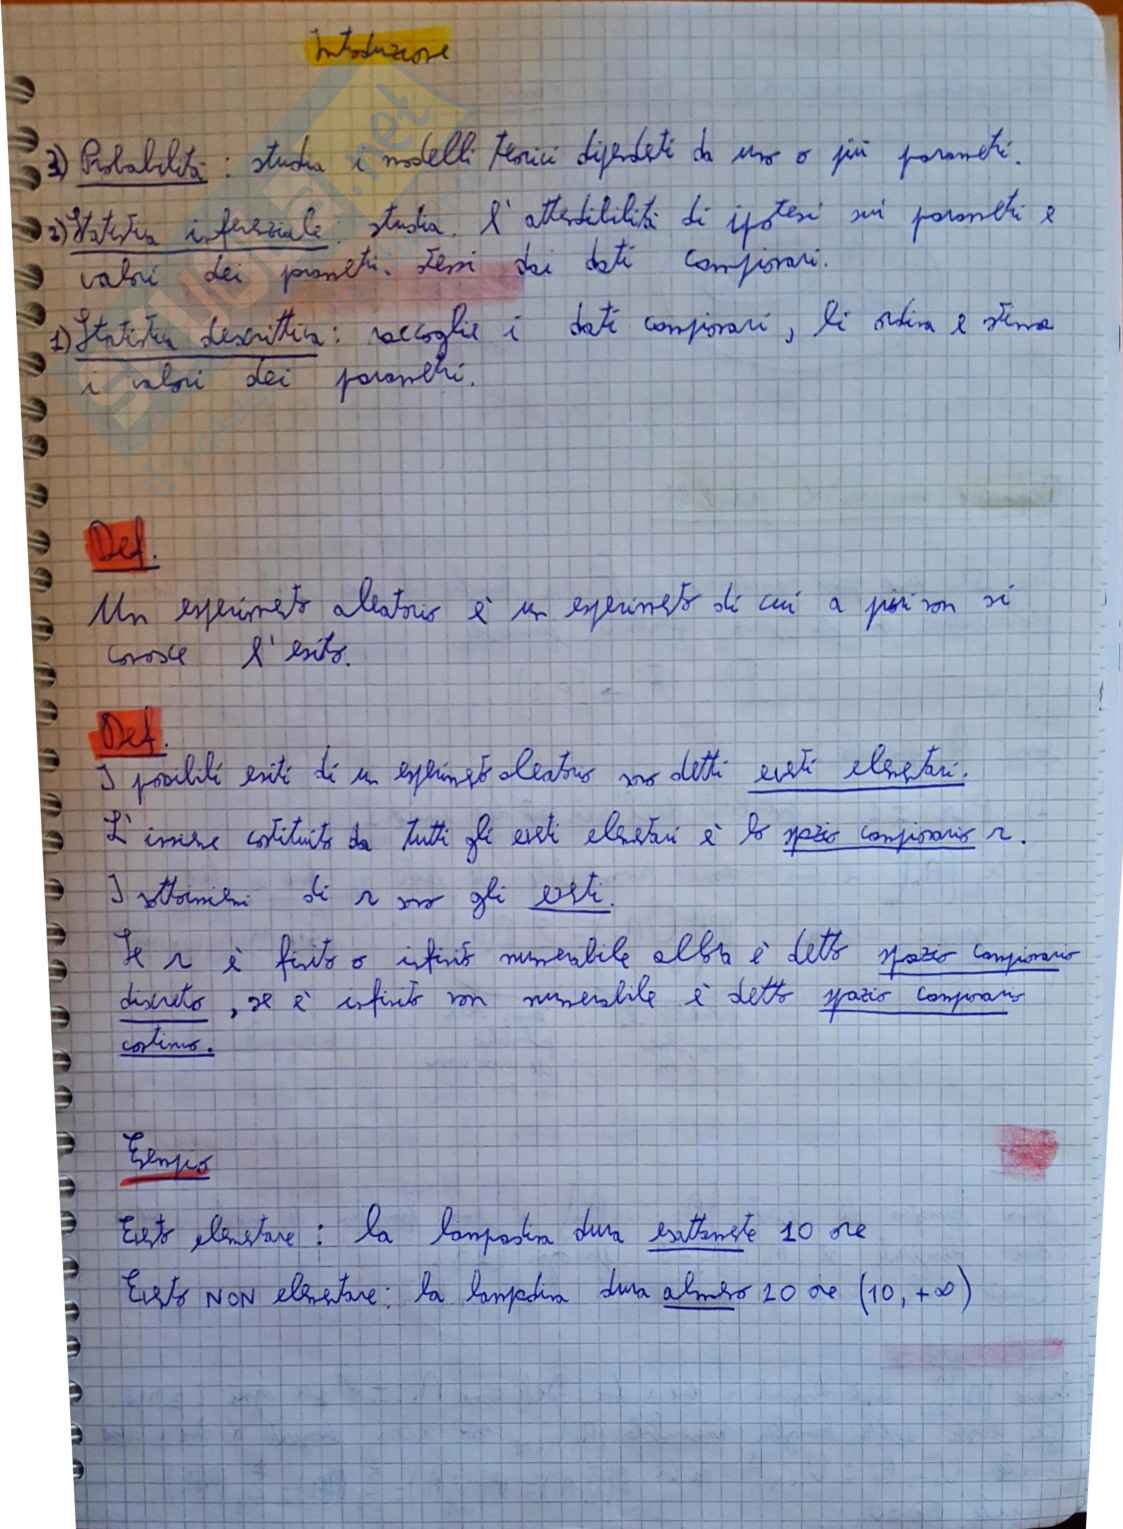 Introduzione
3) Probabilità : studia i modelli teorici dipendenti da uno o più parametri.
2) Statistica inferenziale : studia l'attendibilità di ipotesi sui parametri e
valori dei parametri stessi dai dati campionari.
1) Statistica descrittiva : raccoglie i dati campionari, li ordina e stima
i valori dei parametri.
Def.
Un esperimento aleatorio è un esperimento di cui a priori non si
conosce l'esito.
Def.
I possibili esiti di un esperimento aleatorio sono detti eventi elementari.
L'insieme costituito da tutti gli eventi elementari è lo spazio campionario Ω.
I sottoinsiemi di Ω sono gli eventi.
Se Ω è finito o infinito numerabile allora è detto spazio campionario
discreto, se è infinito non numerabile è detto spazio campionario
continuo.
Esempio
Evento elementare : la lampadina dura esattamente 10 ore
Evento NON elementare : la lampadina dura almeno 10 ore (10, +∞)